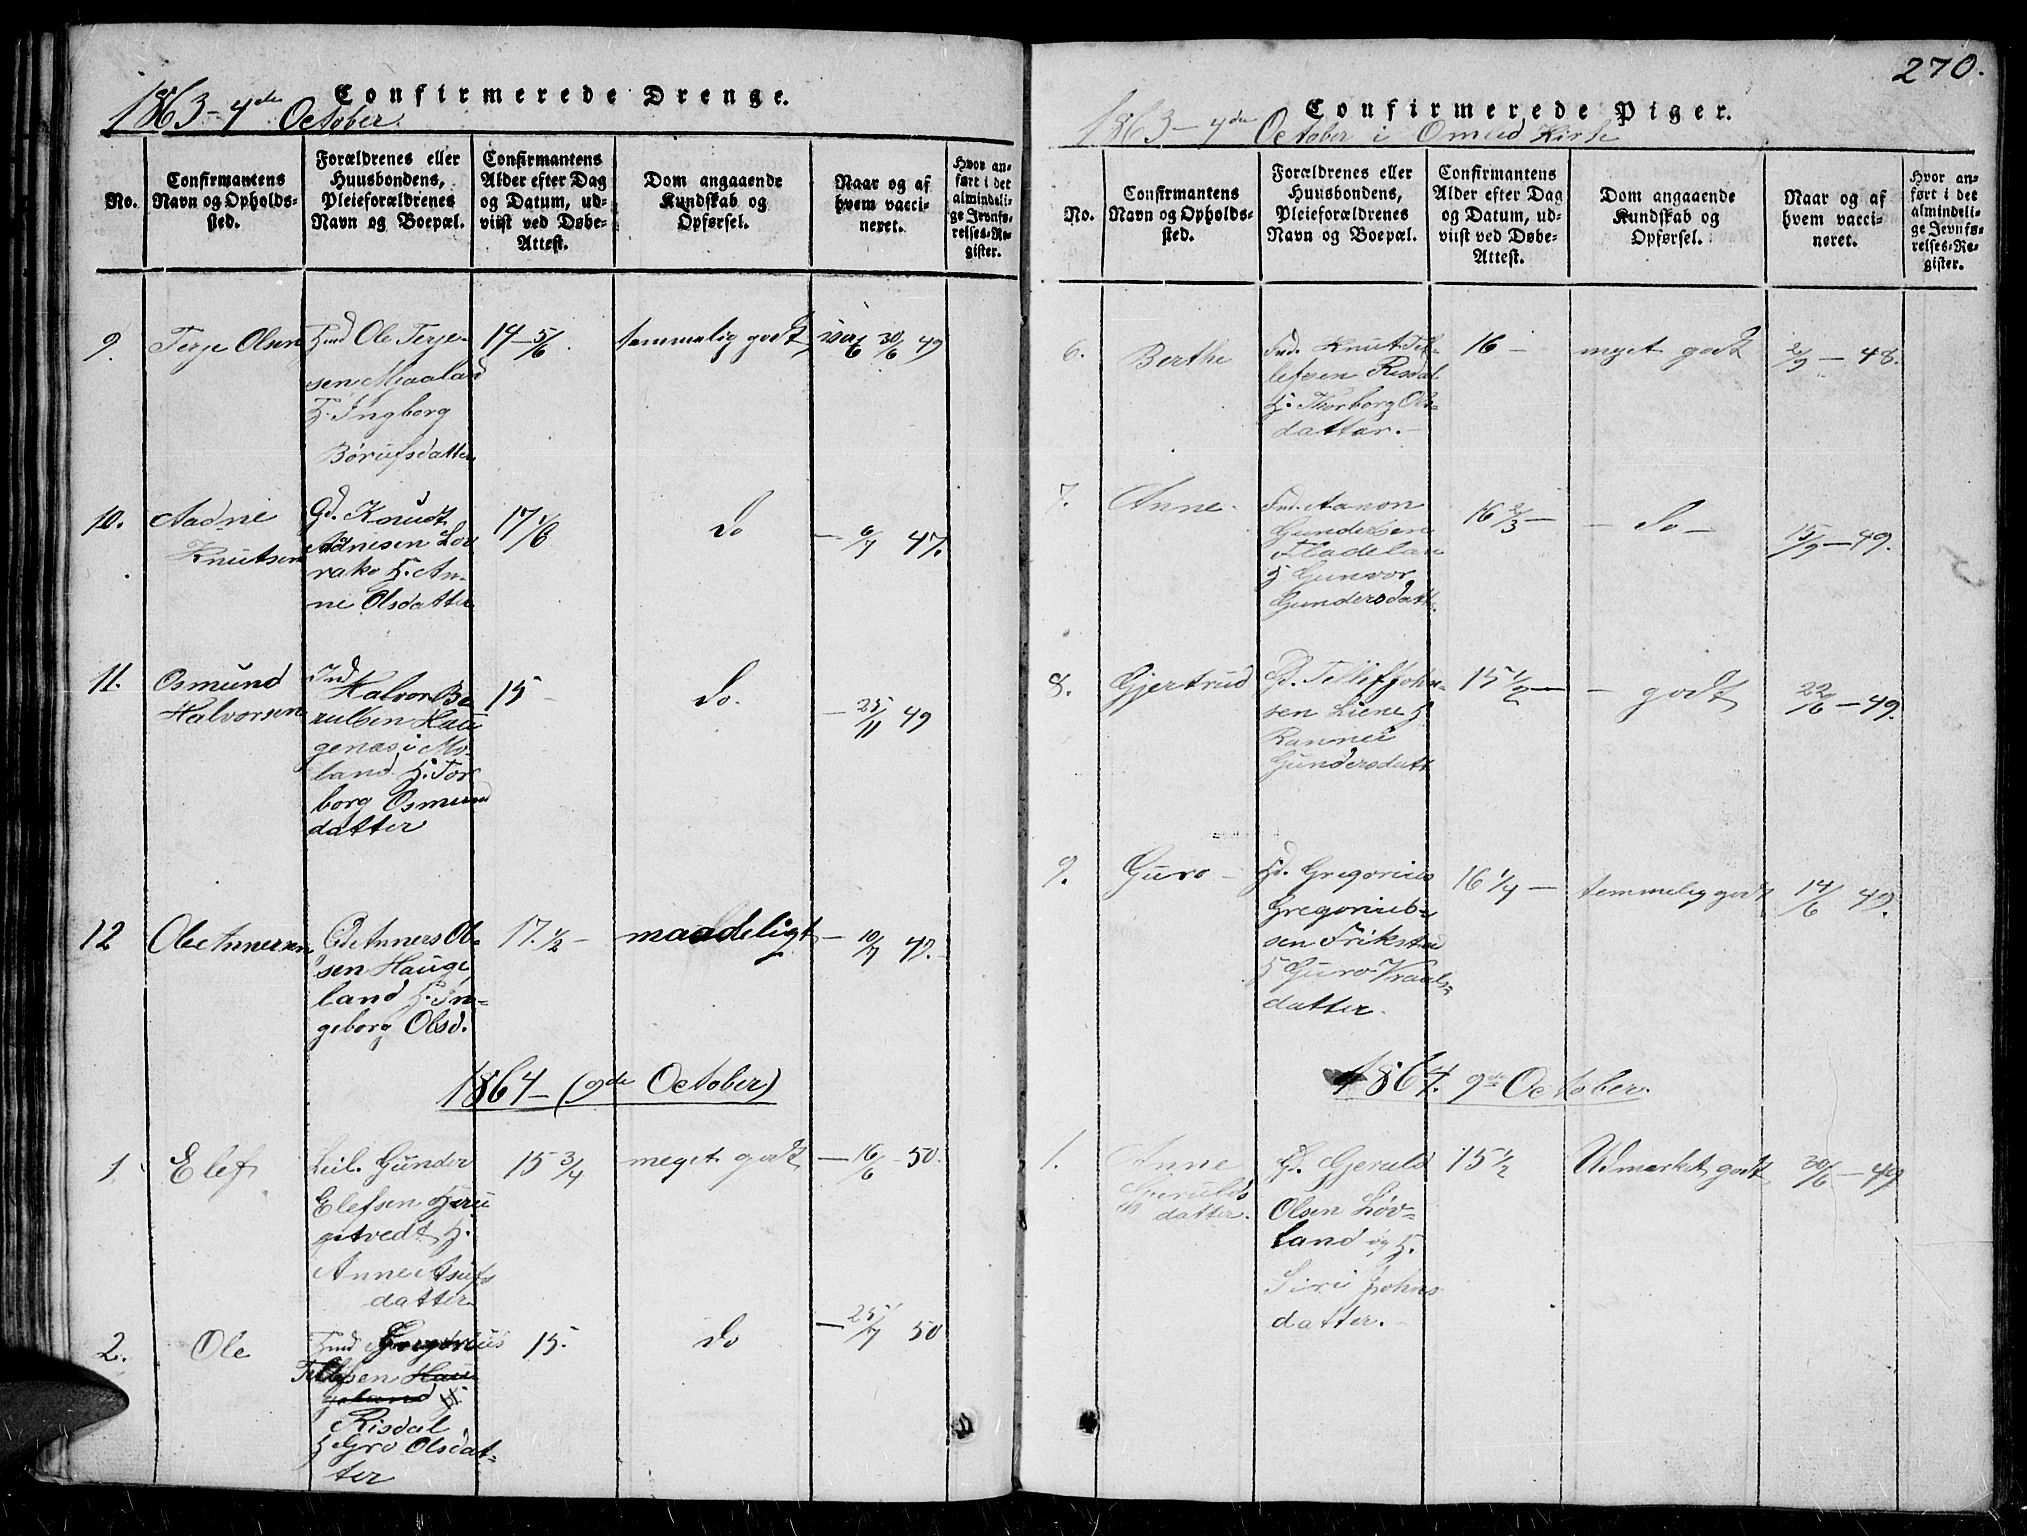 Confirmerede Drenge.
1863 - 4de October
No.
Confirmantens
Navn og Opholds-
sted.
Forældrenes eller
Huusbondens,
Pleieforældrenes
Navn og Boepæl.
Confirmantens
Alder efter Dag
og Datum, ud-
viist ved Døbe-
Attest.
Dom angaaende
Kundskab og
Opførsel.
Naar og af
hvem vacci-
neret.
Hvor an-
ført i det
almindeli-
ge Jevnfø-
relses-Re-
gister.
9. Terje Olsen
Ole Terje-
sen Mjaaland
H. Ingborg
Børufsdatter
14 5/6
temmelig godt
30/6 49
10. Aadne
Knutsen
Gd. Knudt
Adnesen Lov
rako H. An-
ne Olsdatter
17 1/6
Do
— 6/7 47.
11. Osmund
Halvorsen
Ind
Halvor Be
rulsen Hau
genæs i My
land H. Tor
borg Osmund
datter
15 -
Do.
— 25/11 49
12 Ole Annersen
Gd Anners Ol-
sen Hauge
land H. In-
geborg Olsd.
17. 1/2 -
maadeligt
— 10/7 47.
1864 - (9de October)
1. Elef
Leil. Gunder
Elefsen
gtvedt H.
Anne Asulfs
datter
15 3/4
meget godt
— 16/6 - 50.
2. Ole
Gregorius
Tellefsen Hau
geland H
Risdal
H Gro Olsdat-
ter
15.
Do
— 25/7 50
270.
Confirmerede Piger.
1863 - 4de October i Omlid Kirke
No.
Confirmantens
Navn og Opholds-
sted.
Forældrenes eller
Huusbondens,
Pleieforældrenes
Navn og Boepæl.
Confirmantens
Alder efter Dag
og Datum, ud-
viist ved Døbe-
Attest.
Dom angaaende
Kundskab og
Opførsel.
Naar og af
hvem vacci-
neret.
Hvor an-
ført i det
almindeli-
ge Jevnfø-
relses-Re-
gister.
6. Berthe
Ind. Knut Tel-
lefsen Risdal
H. Thorborg Ols-
datter.-
16 -
meget godt
2/9 - 48.
7. Anne.
Ind. Aanon
Gundersen
Fladelan
H Gunvor
Gundersdatt.
16 2/3 -
- Do -
15/9 - 49.
8. Gjertrud
Gd. Tellef John-
sen Liene H
Rannei
Gundersdatt
15 1/2 -
- godt
22/6 - 49.
9. Guro -
Hd. Gregorius
Gregorius-
sen Frikstad
H Guro Vraals-
datter.
16 1/4 -
temmelig godt
14/6 49.
1864. 9de October.
1. Anne
Gerulds
datter.
Gd. Geruld
Olsen Løv-
land og H.
Siri Johns
datter.-
15 1/2
Udmærket godt
30/6 - 49